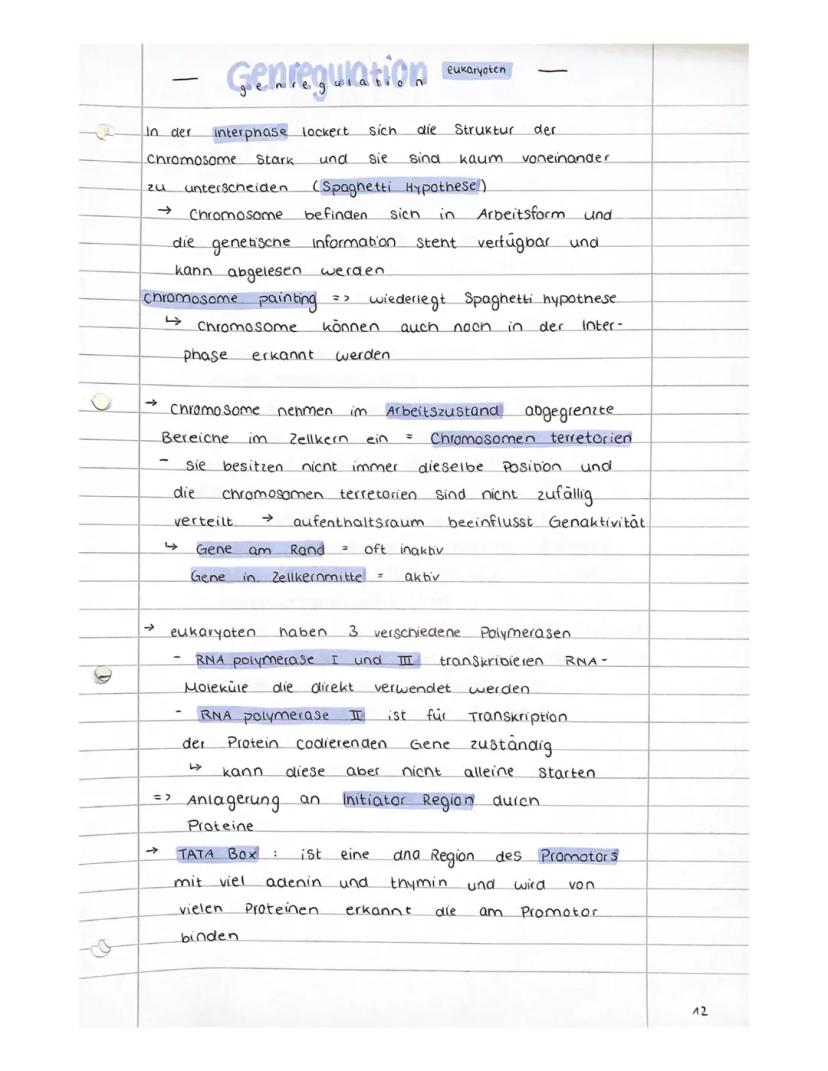 — Genregulation eukaryoten —
genregulation
In der interphase lockert sich die Struktur der
Chromosome Stark und sie sind kaum voneinander
zu unterscheiden (Spaghetti Hypothese)
→ Chromosome befinden sich in Arbeitsform und
die genetische Information steht verfügbar und
kann abgelesen werden
Chromosome painting => wiederlegt Spaghetti hypothese
↳ Chromosome können auch noch in der Inter-
phase erkannt werden
→ Chromosome nehmen im Arbeitszustand abgegrenzte
Bereiche im Zellkern ein = Chromosomen terretorien
- sie besitzen nicht immer dieselbe Position und
die chromosomen terretorien sind nicht zufällig
verteilt → aufenthaltsraum beeinflusst Genaktivität
↳ Gene am Rand = oft inaktiv
Gene in Zellkernmitte = aktiv
→ eukaryoten haben 3 verschiedene Polymerasen
- RNA polymerase I und III transkribieren RNA-
Moleküle die direkt verwendet werden
- RNA polymerase II ist für Transkription
der Protein codierenden Gene zuständig
↳ kann diese aber nicht alleine starten
=> Anlagerung an Initiator Region durch
Proteine
→ TATA Box : ist eine dna Region des Promotors
mit viel adenin und thymin und wird von
vielen Proteinen erkannt die am Promotor
binden
12